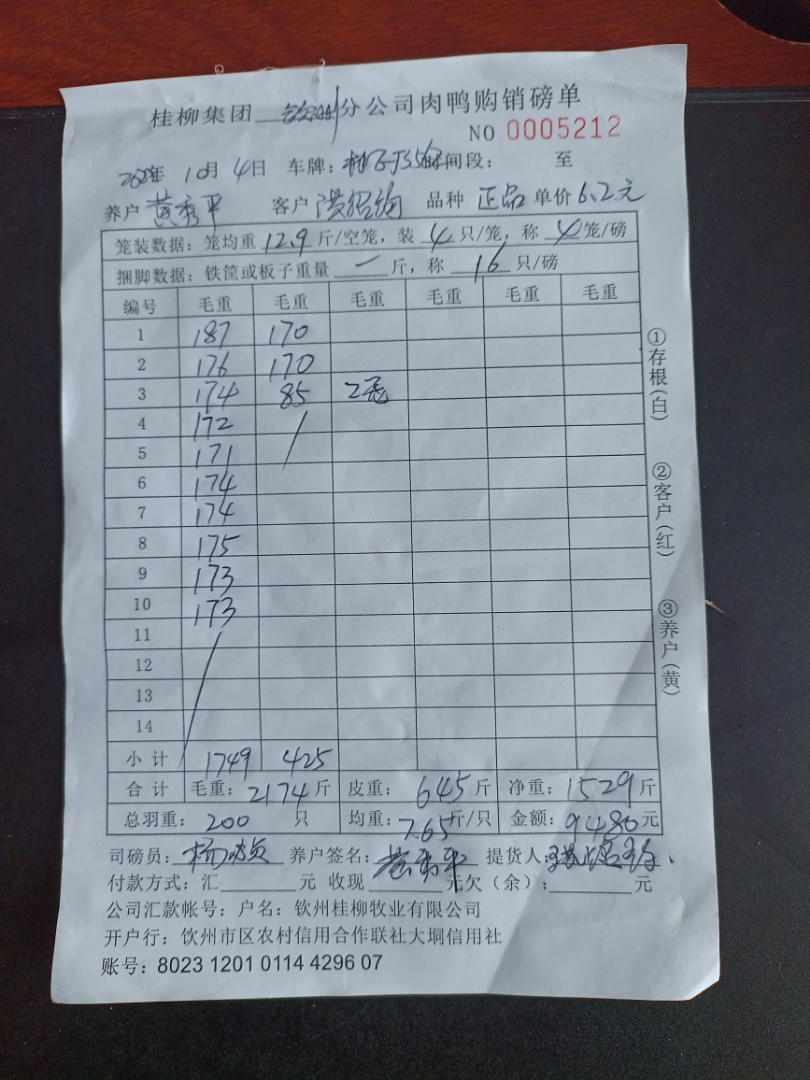 桂柳集团 钦州 分公司肉鸭购销磅单
NO 0005212
年 10月 4日 车牌: 时间段: 至
养户 黄秀平 客户 品种 正品 单价 6.2元
笼装数据: 笼均重 12.9 斤/空笼, 装 4 只/笼, 称 4 笼/磅
捆脚数据: 铁筐或板子重量 一 斤, 称 16 只/磅
编号 毛重 毛重 毛重 毛重 毛重 毛重
1 187 170
2 176 170
3 174 85 2毛
4 172 /
5 171
6 174
7 174
8 175
9 173
10 173
11 /
12
13
14
小计 1749 425
合计 毛重: 2174 斤 皮重: 645 斤 净重: 1529 斤
总羽重: 200 只 均重: 7.65 斤/只 金额: 9480 元
司磅员: 养户签名: 黄秀平 提货人:
付款方式: 汇 元 收现 元欠(余): 元
公司汇款帐号: 户名: 钦州桂柳牧业有限公司
开户行: 钦州市区农村信用合作联社大垌信用社
账号: 8023 1201 0114 4296 07
①存根(白)
②客户(红)
③养户(黄)